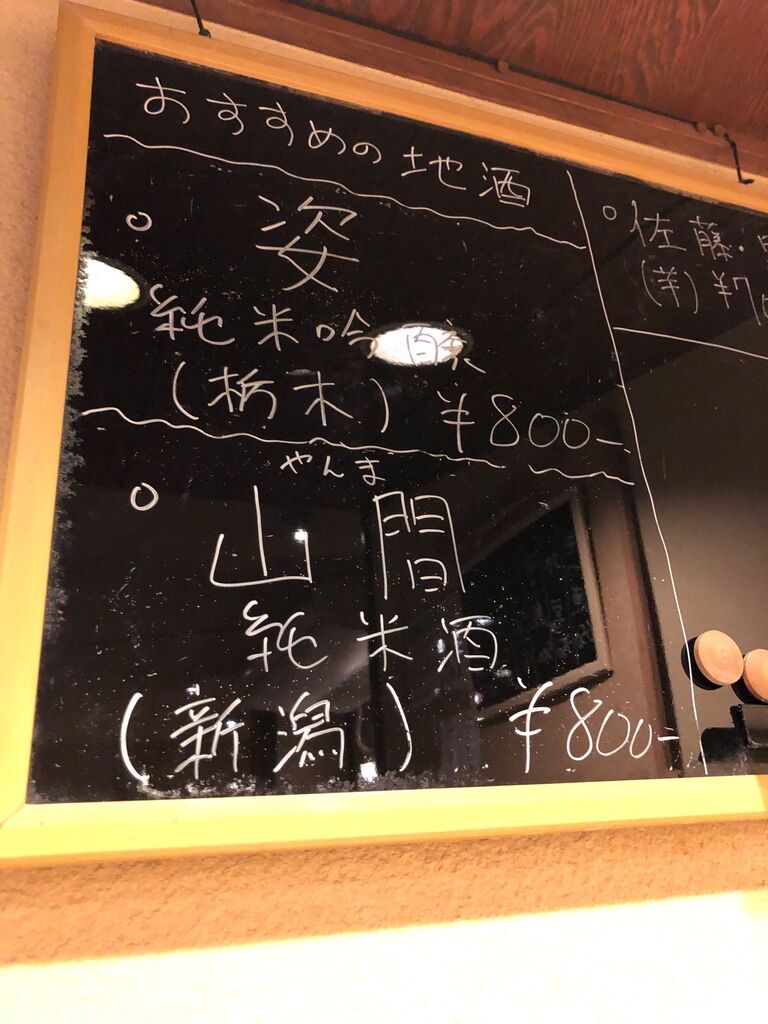 おすすめの地酒
○ 姿
純米吟醸
(栃木) ¥800-
やんま
○ 山間
純米酒
(新潟) ¥800-
○ 佐藤・
(芋) ¥70